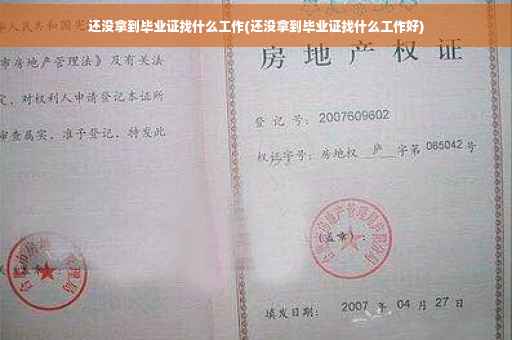 还没拿到毕业证找什么工作(还没拿到毕业证找什么工作好)
市房地产管理法》及有关法
定，对权利人申请登记本证所
审查属实，准予登记，特发此
房地产权证
登记号：2007609602
权证字号：房地权 庐 字第 085042 号
(盖章)：
填发日期：2007 年 04 月 27 日